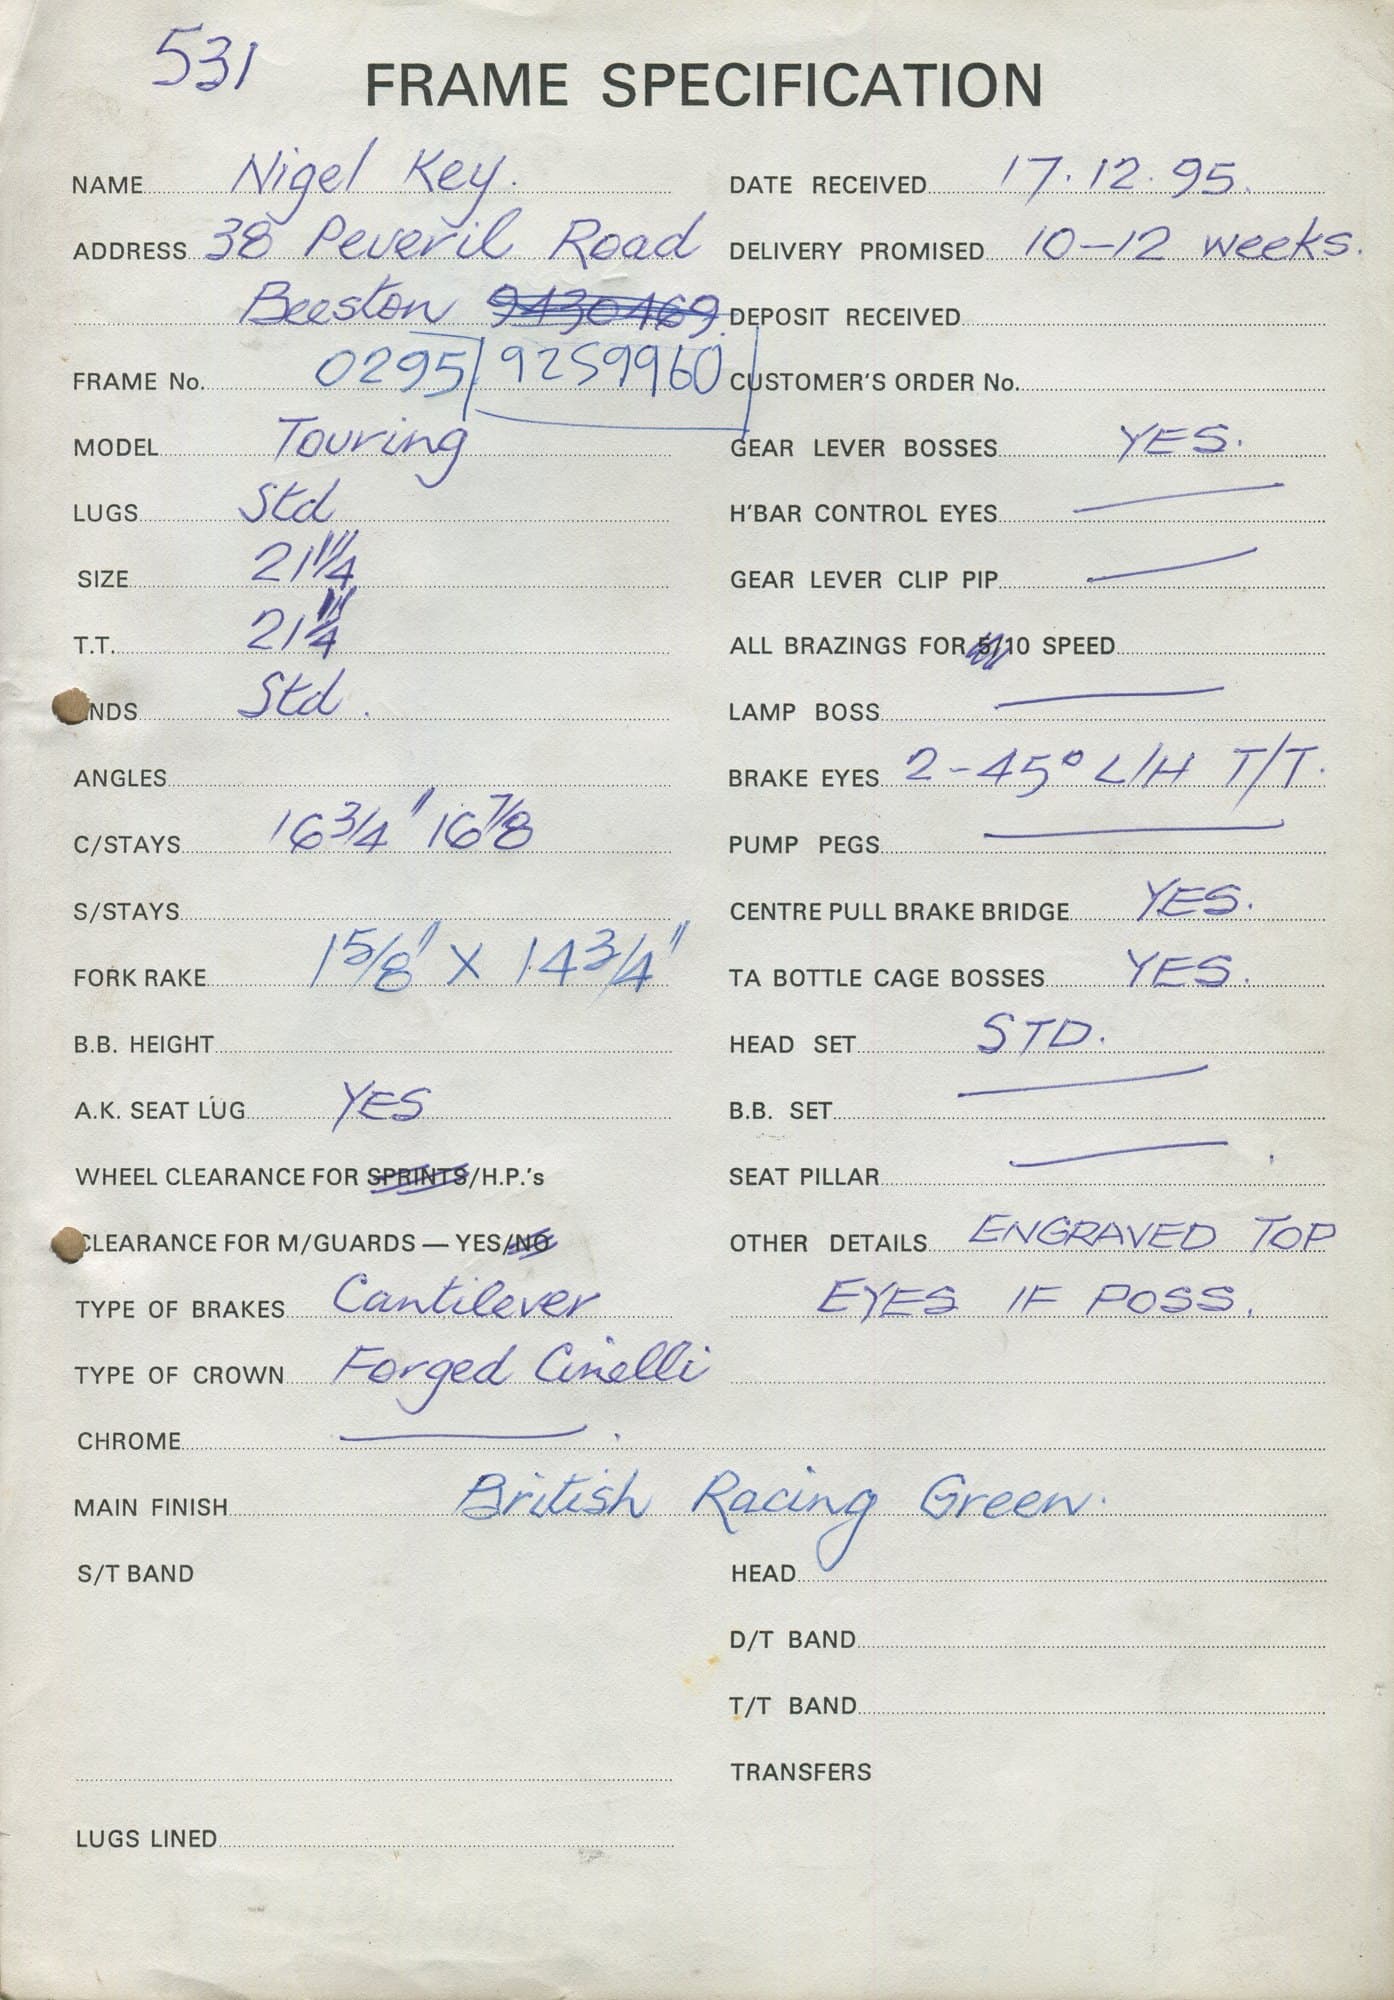 531
FRAME SPECIFICATION
NAME Nigel Key.
ADDRESS 38 Peveril Road
Beeston 9430469.
FRAME No. 0295 9259960
MODEL Touring
LUGS Std
SIZE 21 1/4"
T.T. 21 1/4"
NDS Std.
ANGLES
C/STAYS 16 3/4" 16 7/8
S/STAYS
FORK RAKE 1 5/8" X 14 3/4"
B.B. HEIGHT
A.K. SEAT LUG YES
WHEEL CLEARANCE FOR SPRINTS/H.P.'s
CLEARANCE FOR M/GUARDS — YES/NO
TYPE OF BRAKES Cantilever
TYPE OF CROWN Forged Cinelli
CHROME
MAIN FINISH British Racing Green.
S/T BAND
LUGS LINED
DATE RECEIVED 17.12.95.
DELIVERY PROMISED 10-12 weeks.
DEPOSIT RECEIVED
CUSTOMER'S ORDER No.
GEAR LEVER BOSSES YES.
H'BAR CONTROL EYES
GEAR LEVER CLIP PIP
ALL BRAZINGS FOR 5/10 SPEED
LAMP BOSS
BRAKE EYES 2-45° L/H T/T.
PUMP PEGS
CENTRE PULL BRAKE BRIDGE YES.
TA BOTTLE CAGE BOSSES YES.
HEAD SET STD.
B.B. SET
SEAT PILLAR
OTHER DETAILS ENGRAVED TOP
EYES IF POSS.
HEAD
D/T BAND
T/T BAND
TRANSFERS